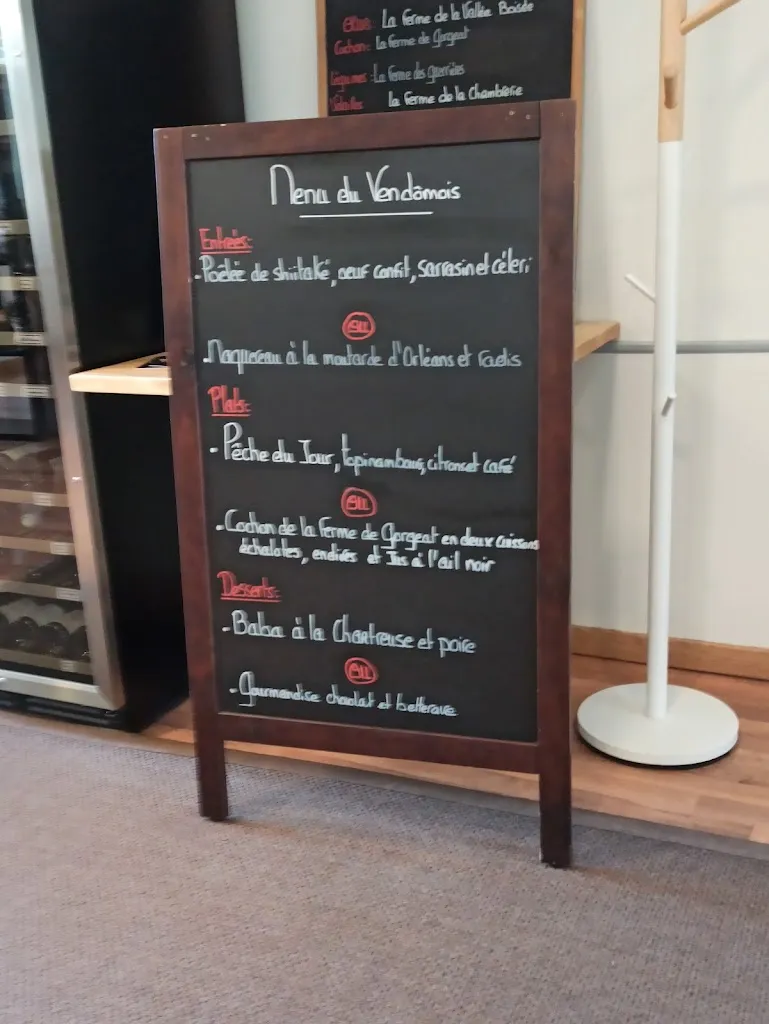 La Ferme de la Vallée Boisée
Cochon: La Ferme de Gorgeat
Légumes: La Ferme des
Volailles La Ferme de la Chambrerie
Menu du Vendômois
Entrées:
-Poêlée de shiitaké, oeuf confit, Sarrasin et céleri
OU
-Maquereau à la moutarde d'Orléans et radis
Plats:
- Pêche du Jour, topinambour, citron et café
OU
- Cochon de la Ferme de Gorgeat en deux cuissons
échalotes, endives et Jus à l'ail noir
Desserts:
- Baba à la Chartreuse et poire
OU
- Gourmandise chocolat et betterave